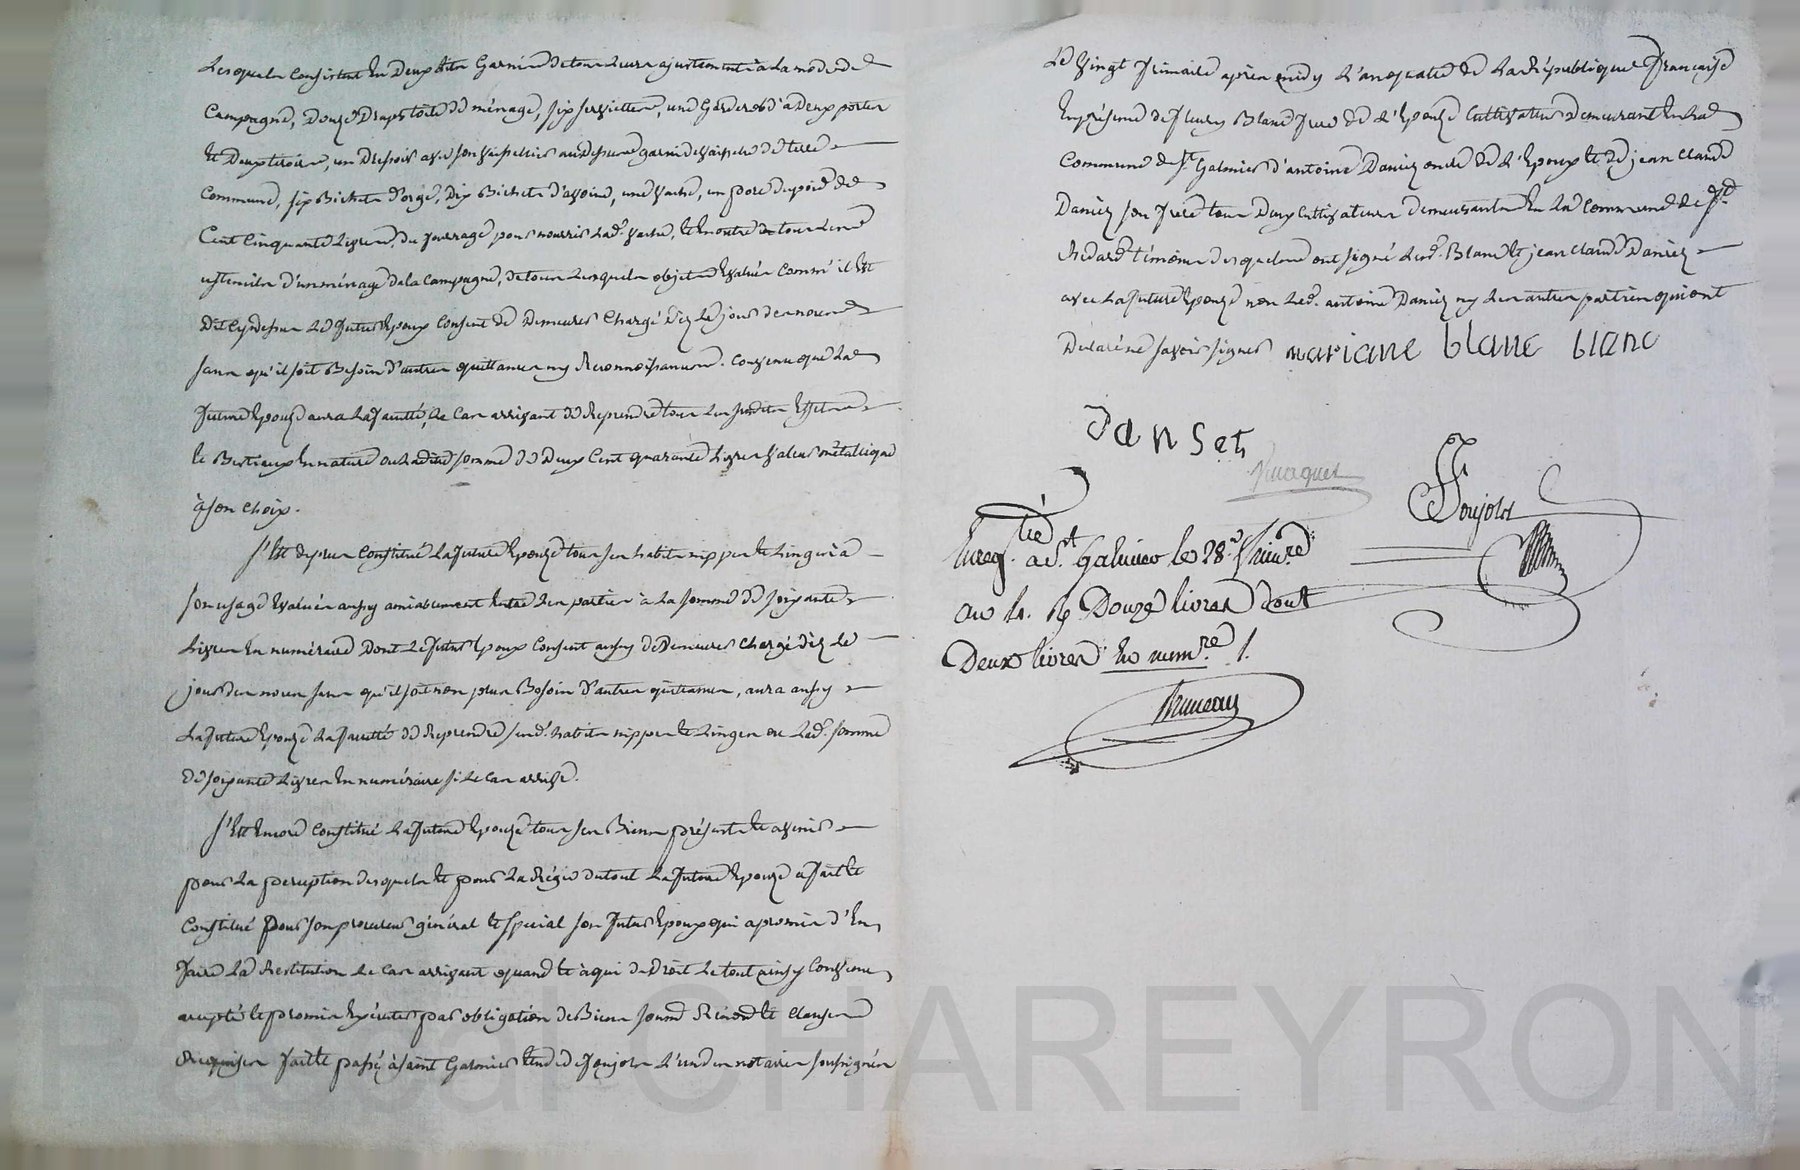 Lesquels Consistent En Deux lits Garnis de tous leurs ajustements à la mode de
Campagne, Douze Draps toile de ménage, six serviettes, une Garderobe à Deux portes
et Deux tiroirs, un Dressoir avec son vaissellier au Dessus garni de vaisselle de terre
Commune, six Bichets d'orge, Dix Bichets d'avoine, une vache, un porc du poids de
Cent Cinquante Livres, du fourrage pour nourrir lad. vache, et
ustenciles d'un ménage de la Campagne, de tous Lesquels objets Evalués Comme il Est
Dit Cy dessus Le futur Epoux Consent de Demeurer Chargé Dez Le jour des noces
sans qu'il soit Besoin d'autres quittances ny Reconnoissances. Convenu que La
future Epouze aura La faculté, Le Cas arrivant de Reprendre tous Les susdits Effets
et Bestiaux En nature ou Ladite somme de Deux Cent quarante Livres valeur métalique
à son choix.
S'Est de plus Constitué La future Epouze tous ses habits nippes et Linges à
son usage Evalués aussy amiablement Entre Les parties à La somme de soixante
Livres En numéraire Dont Le futur Epoux Consent aussy de Demeurer Chargé dez Le
jour des noces sans qu'il soit non plus Besoin d'autres quittances, aura aussy
La future Epouze La faculté de Reprendre sesd. habits nippes et Linges ou Lad. somme
de soixante Livres En numéraire si Le Cas arrive.
S'Est Encore Constitué La future Epouze tous ses Biens présents et avenir
pour La perception desquels et pour La Régie du tout La future Epouze a fait et
Constitué pour son procureur général et spécial son futur Epoux qui a promis d'En
faire La Restitution Le Cas arrivant quand et à qui de Droit Le tout ainsy Convenu
accepté et promis Exécuter par obligation de Biens soumis Renon. et Clauses
Requises fait et passé à Saint Galmier Etude de Joujols L'un des notaires soussignés
Le Vingt frimaire après midy L'an quatre de La République française
En présence de fleury Blanc frere de L'Epouze Cultivateur Demeurant En La
Commune de St. Galmier d'antoine Dansez oncle de L'Epoux et de jean Claude
Dansez son frere tous Deux Cultivateurs demeurants En La Commune de St.
Médard témoins desquels ont signé Led. Blanc et jean Claude Dansez
avec La future Epouze non Led. antoine Dansez ny Les autres parties qui ont
Declaré ne savoir signer mariane blanc blanc
dansez
Joujols
Enreg.tré a St. Galmier le 28. frim.re
au 4. Douze livres dont
Deux livres En num.re /.